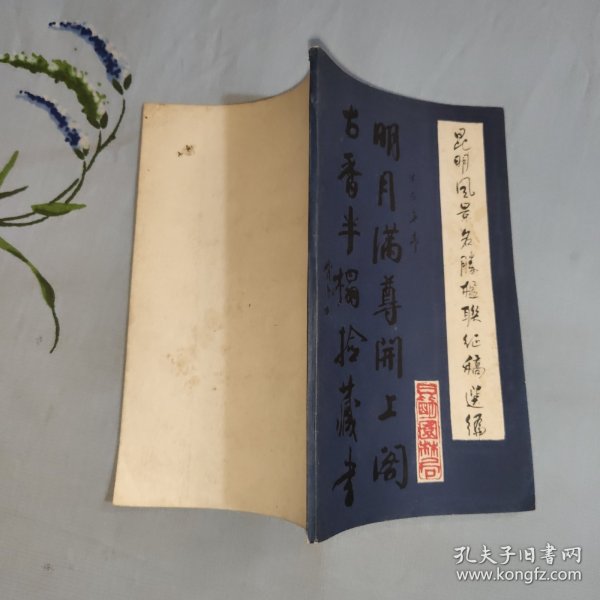 昆明风景名勝楹联征稿选编
明月满尊開上阁
古香半榻拾藏書
昆明園林局
孔夫子旧书网
www.kongfz.com